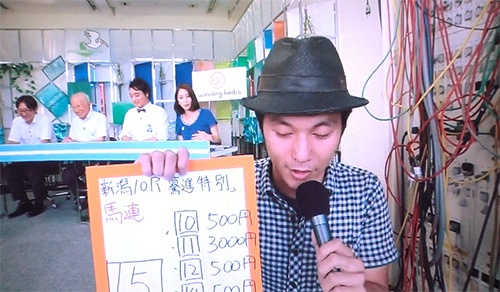 winning keiba
新潟10R 驀進特別
馬連
10 500円
11 3000円
15 ・12 500円
500円